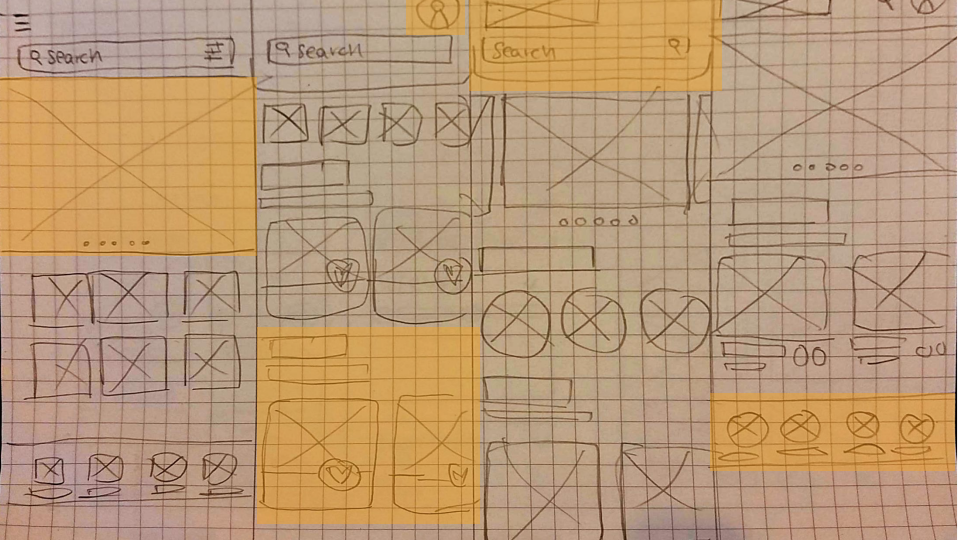 search
search
search